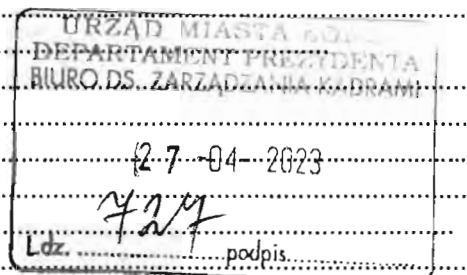 URZĄD MIASTA
DEPARTAMENT PREZYDENTA
BIURO DS. ZARZĄDZANIA KADRAMI
27 -04- 2023
727
Ldz. .................... podpis....................